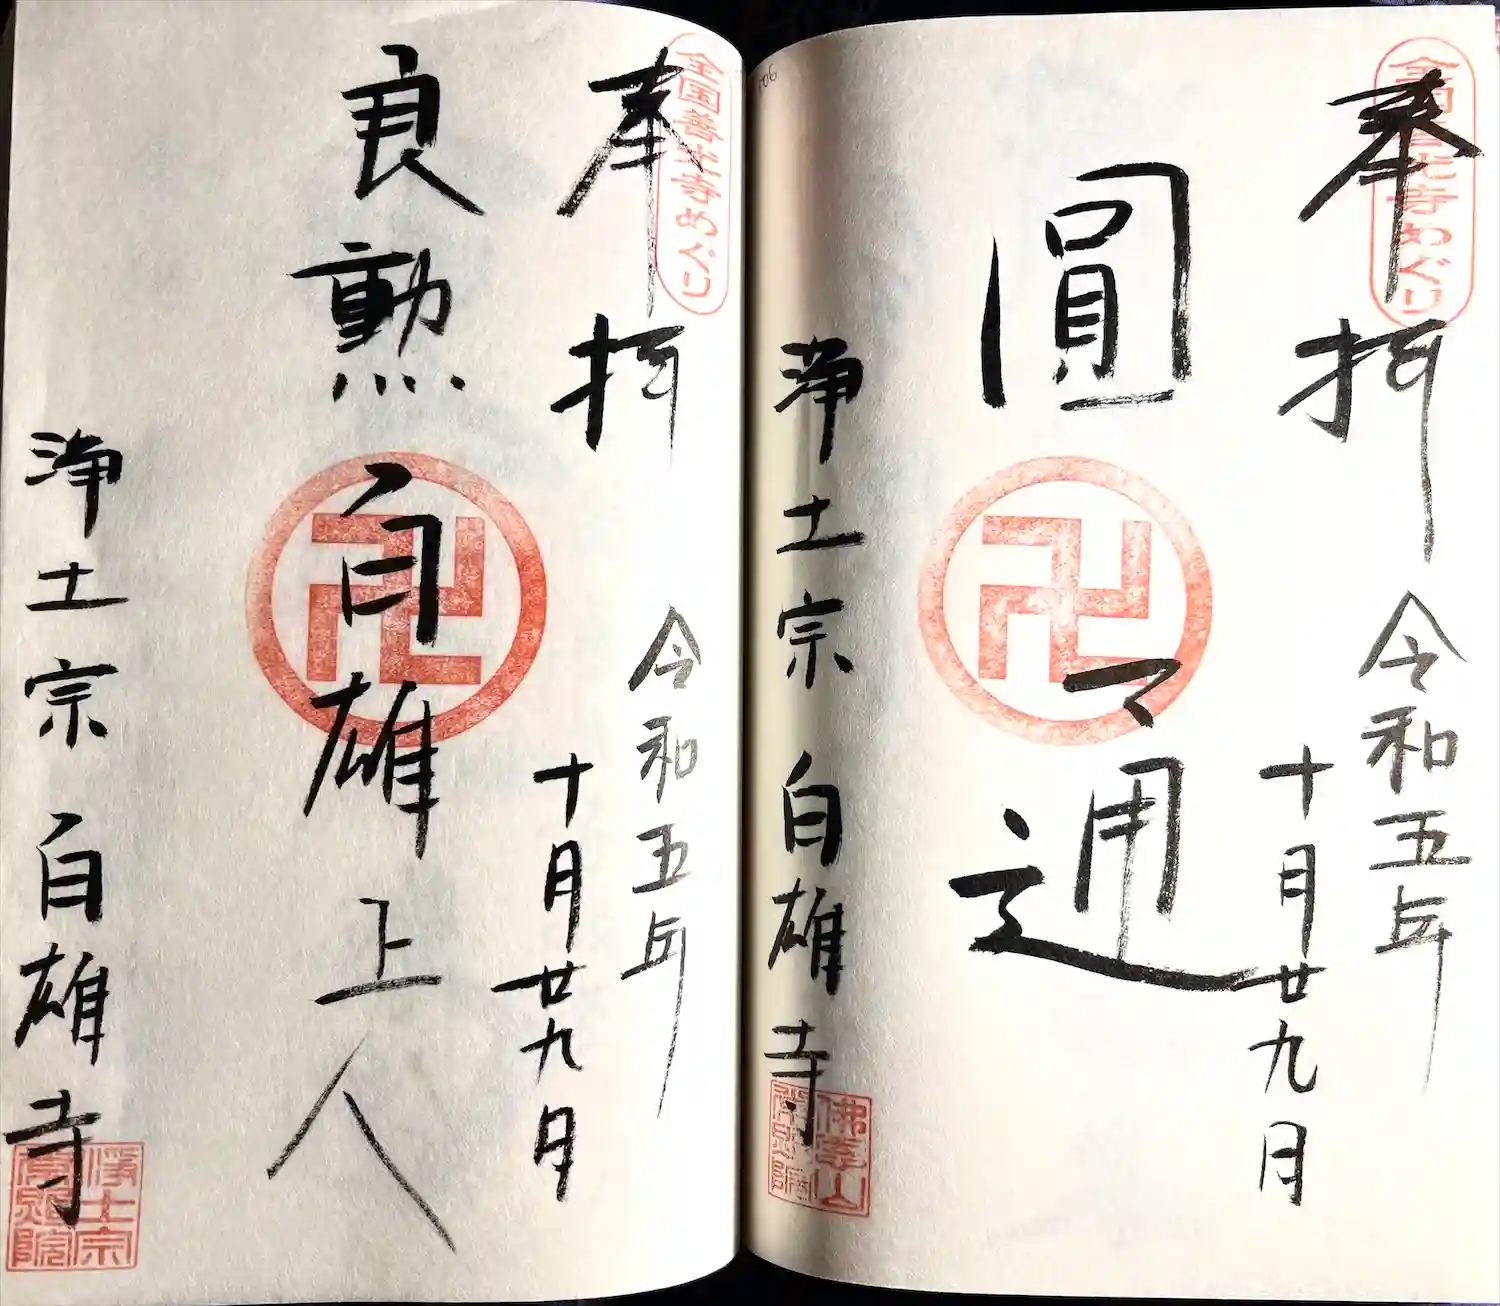 全国善光寺めぐり
奉拝 令和五年
十月廿九日
圓通
浄土宗 白雄寺
全国善光寺めぐり
奉拝 令和五年
十月廿九日
良勲白雄上人
浄土宗 白雄寺
浄土宗